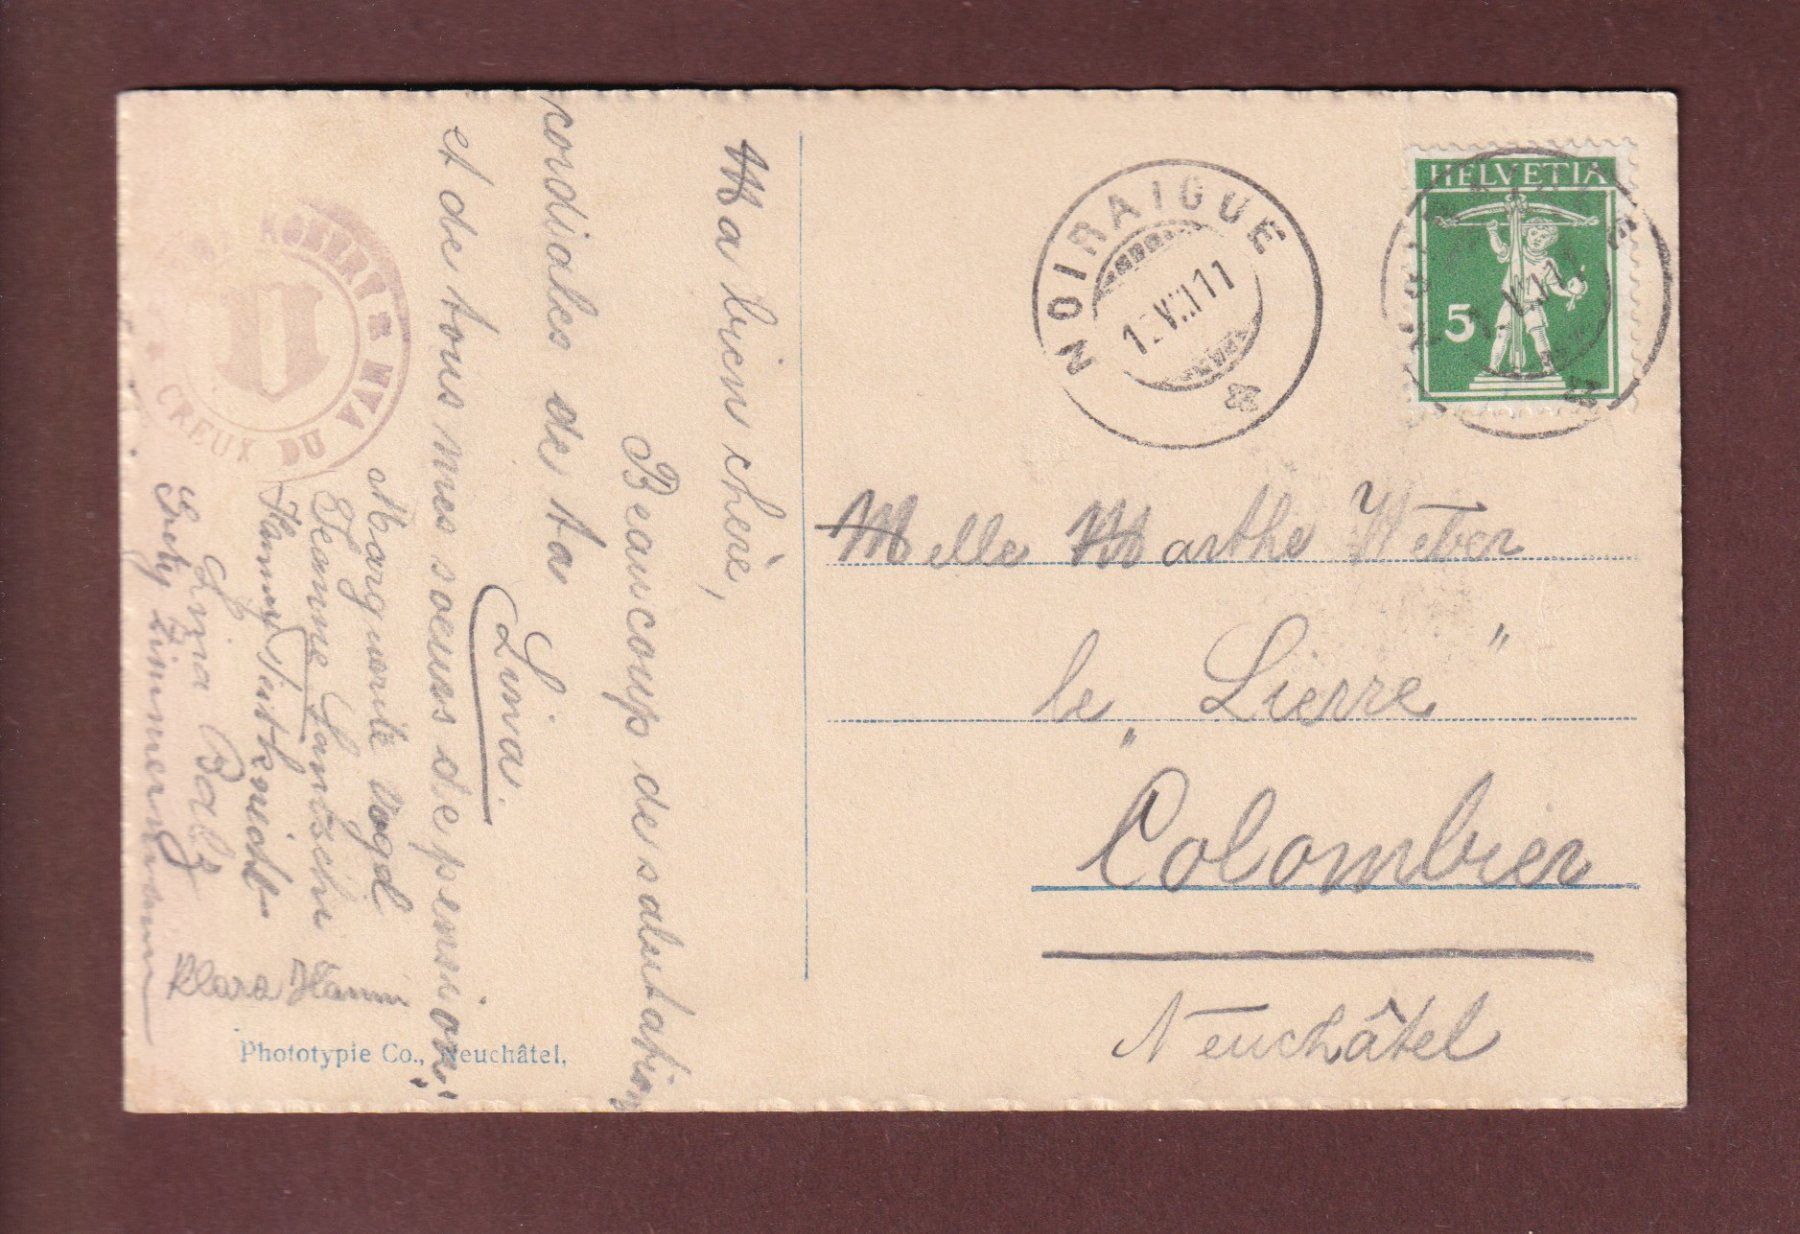 Ma bien chère,
Beaucoup de salutations
cordiales de ta
Lina.
et de tous mes soeurs de pension:
Marguerite Vogd
Jeanne
Hanny
Lina Balz
Grety Zimmermann
Klara Hanni
ROBERT & NVA
CREUX DU VAN
Phototypie Co., Neuchâtel,
NOIRAIGUE
1. VII 11
HELVETIA
5
Melle Marthe Weber
le „Lierre"
Colombier
Neuchâtel